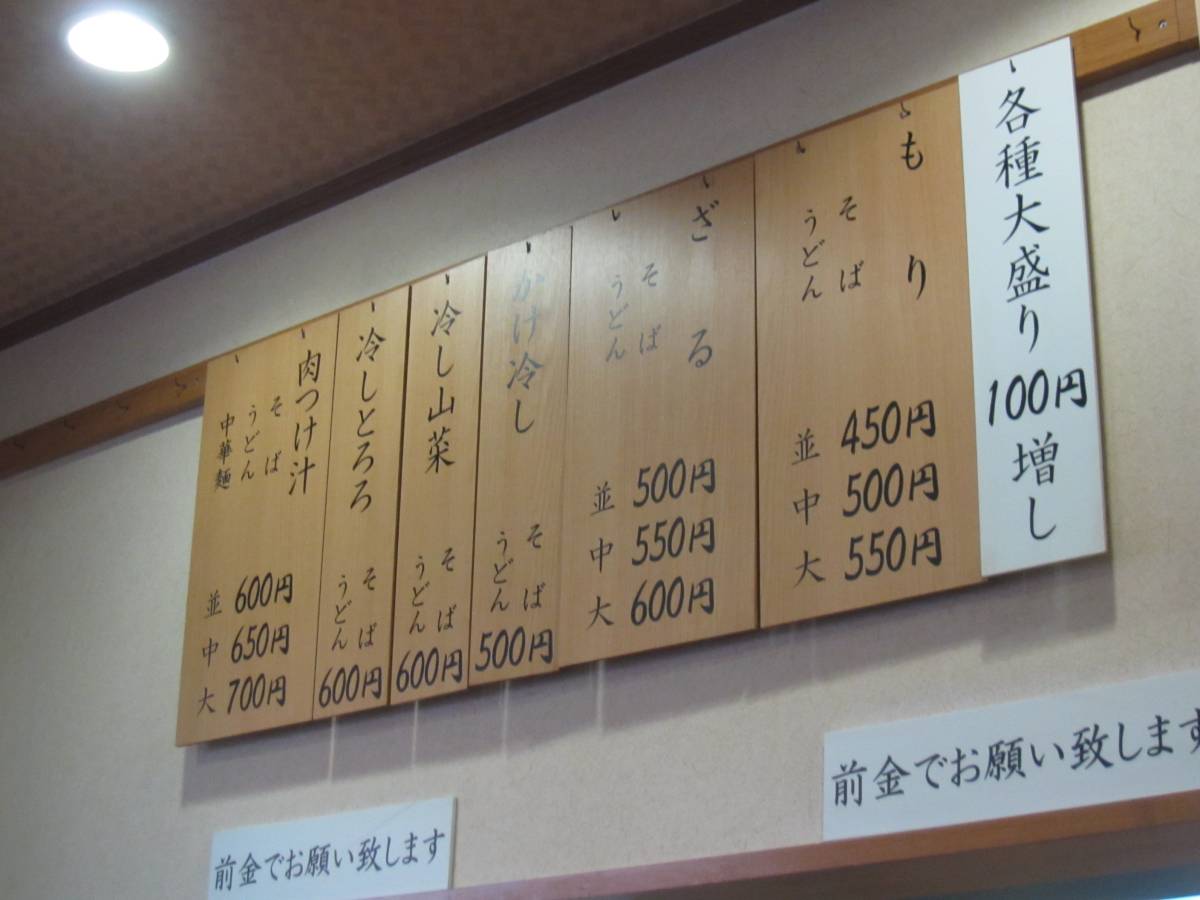 各種大盛り100円増し
もり
そば
うどん
並 450円
中 500円
大 550円
ざる
そば
うどん
並 500円
中 550円
大 600円
かけ冷し
そば
うどん
500円
冷し山菜
そば
うどん
600円
冷しとろろ
そば
うどん
600円
肉つけ汁
そば
うどん
中華麺
並 600円
中 650円
大 700円
前金でお願い致します
前金でお願い致します